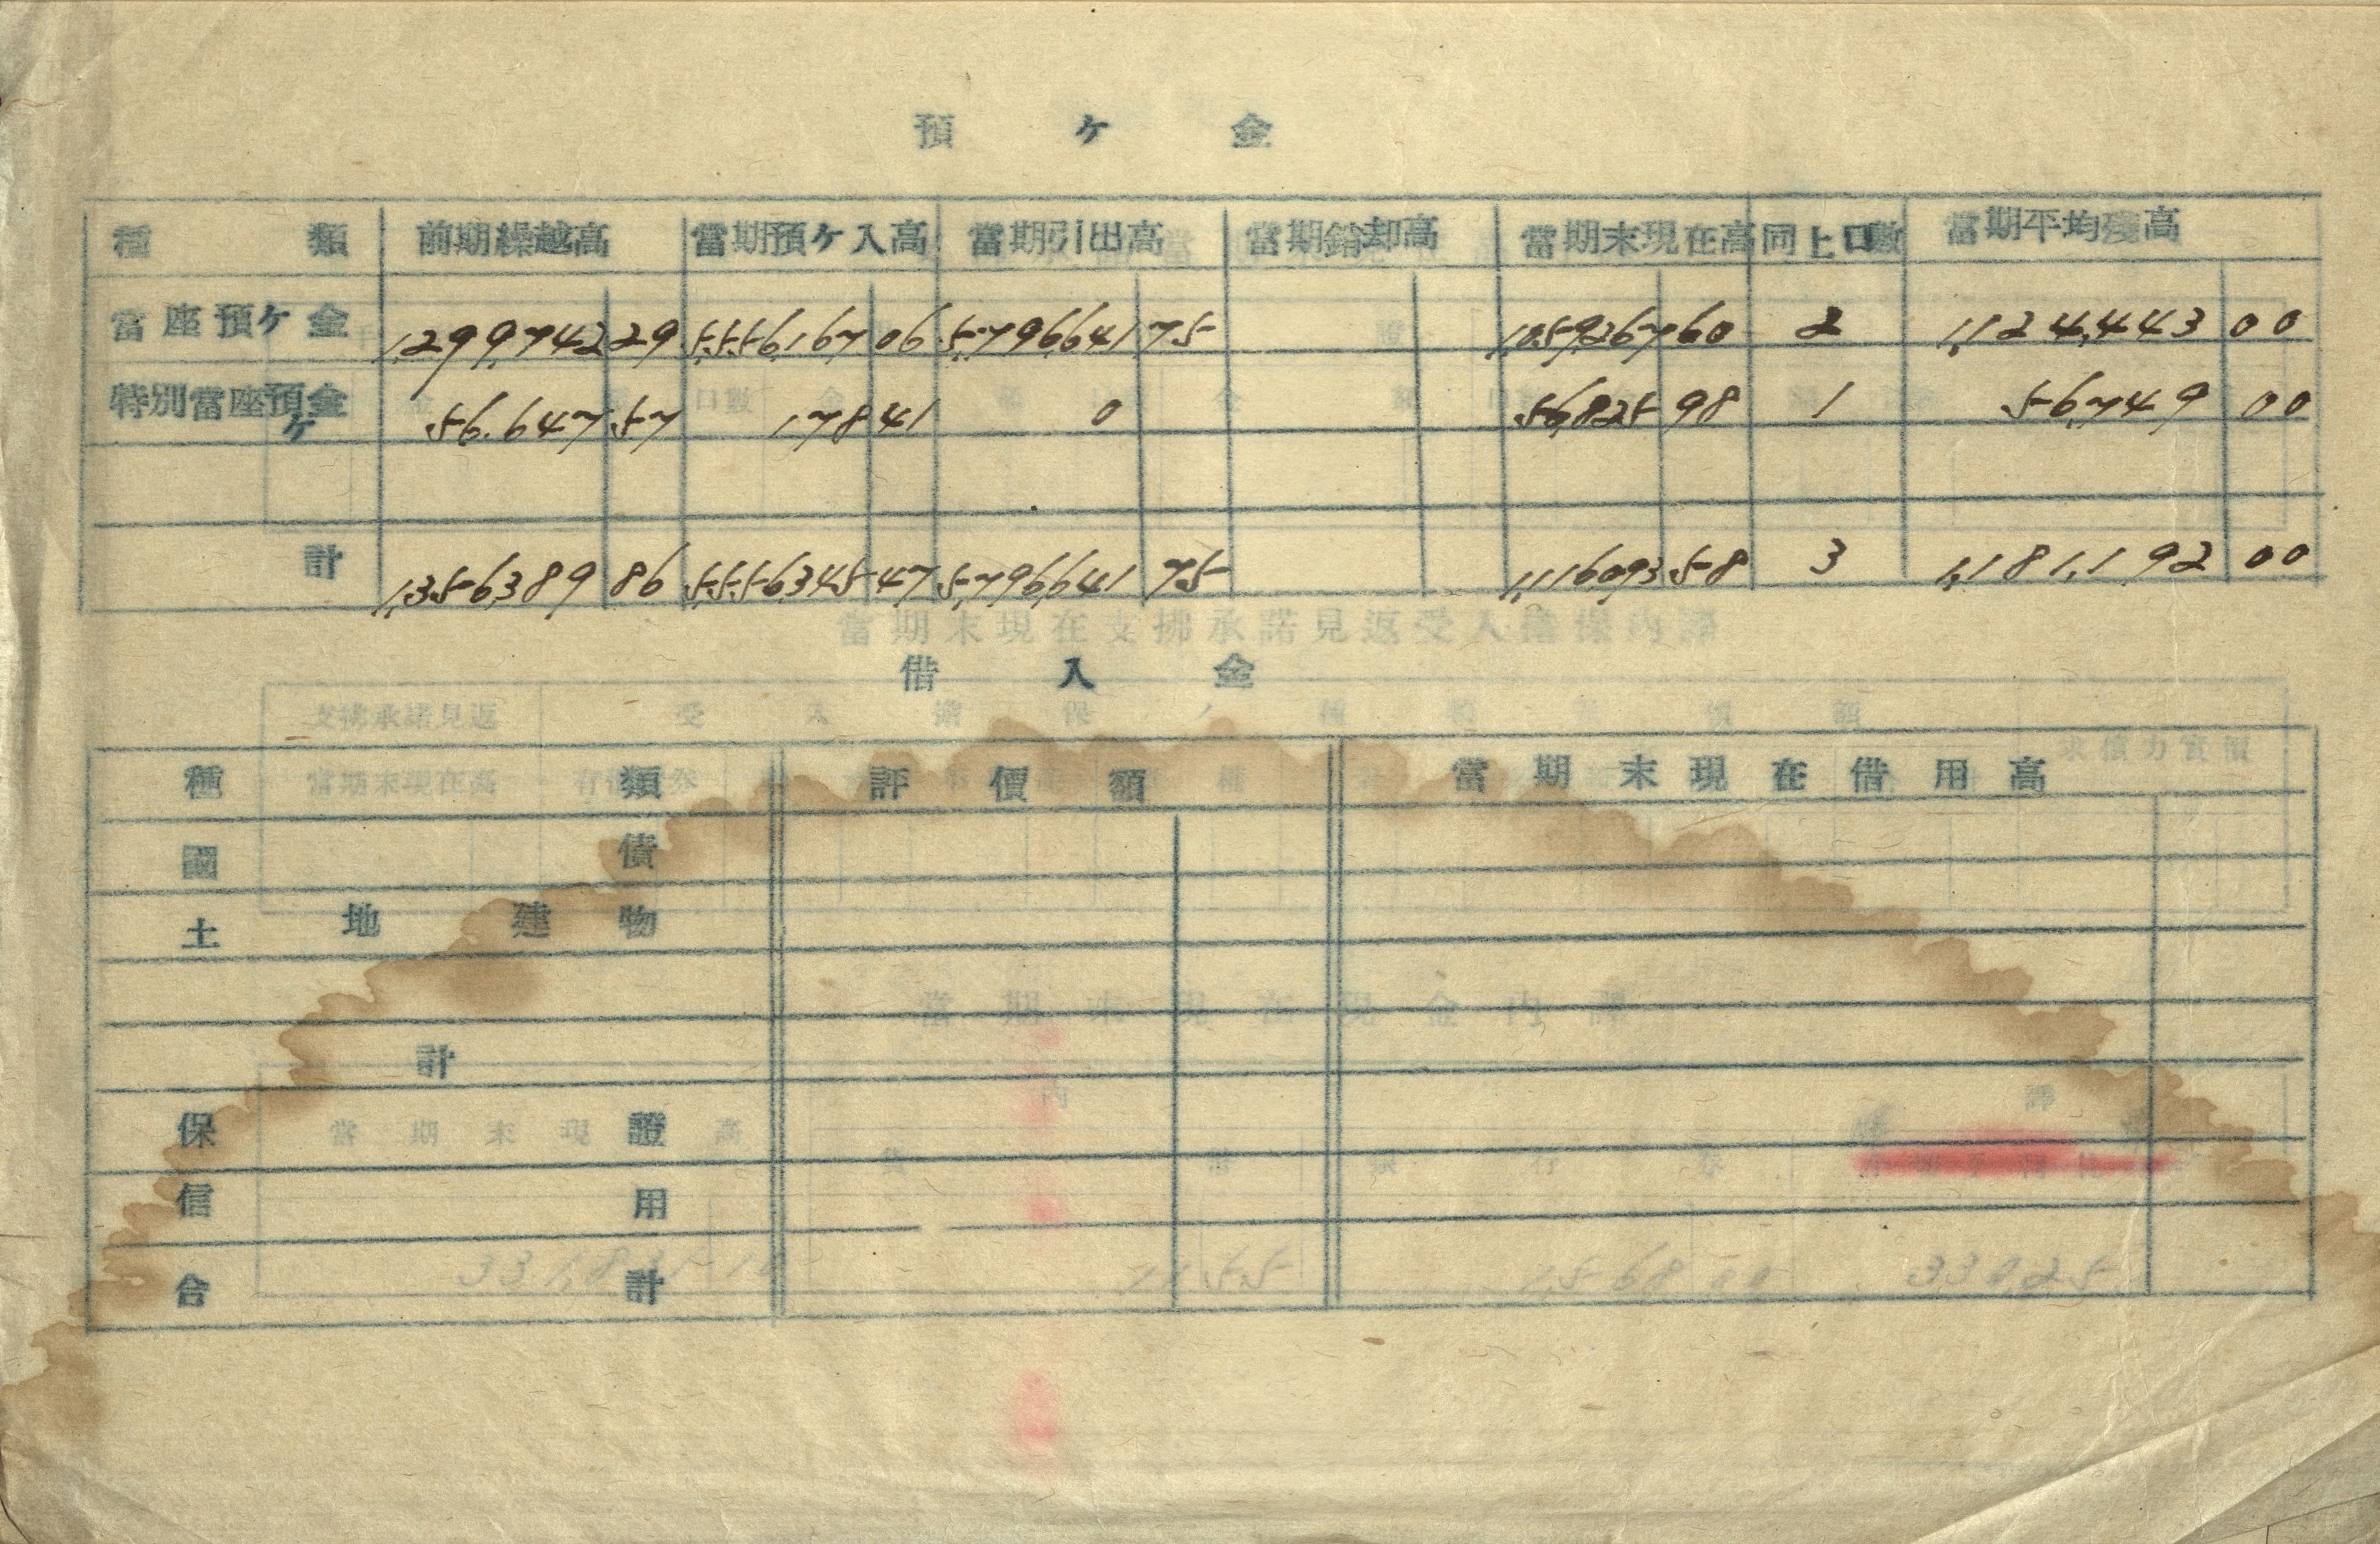 預ケ金
種類 前期繰越高 當期預ケ入高 當期引出高 當期銷却高 當期末現在高 同上口數 當期平均殘高
當座預ケ金 1,299,742 29 5,556,167 06 5,796,641 75 1,059,267 60 2 1,124,443 00
特別當座預ケ金 56,647 57 178 41 0 56,825 98 1 56,749 00
計 1,356,389 86 5,556,345 47 5,796,641 75 1,116,093 58 3 1,181,192 00
當期末現在支拂承諾見返受入擔保內譯
借入金
支拂承諾見返 受入擔保ノ種類
種類 評價額 當期末現在借用高
當期末現在高
國債
土地建物
當期末現在現金內譯
計
保證
當期末現在高
信用
合計